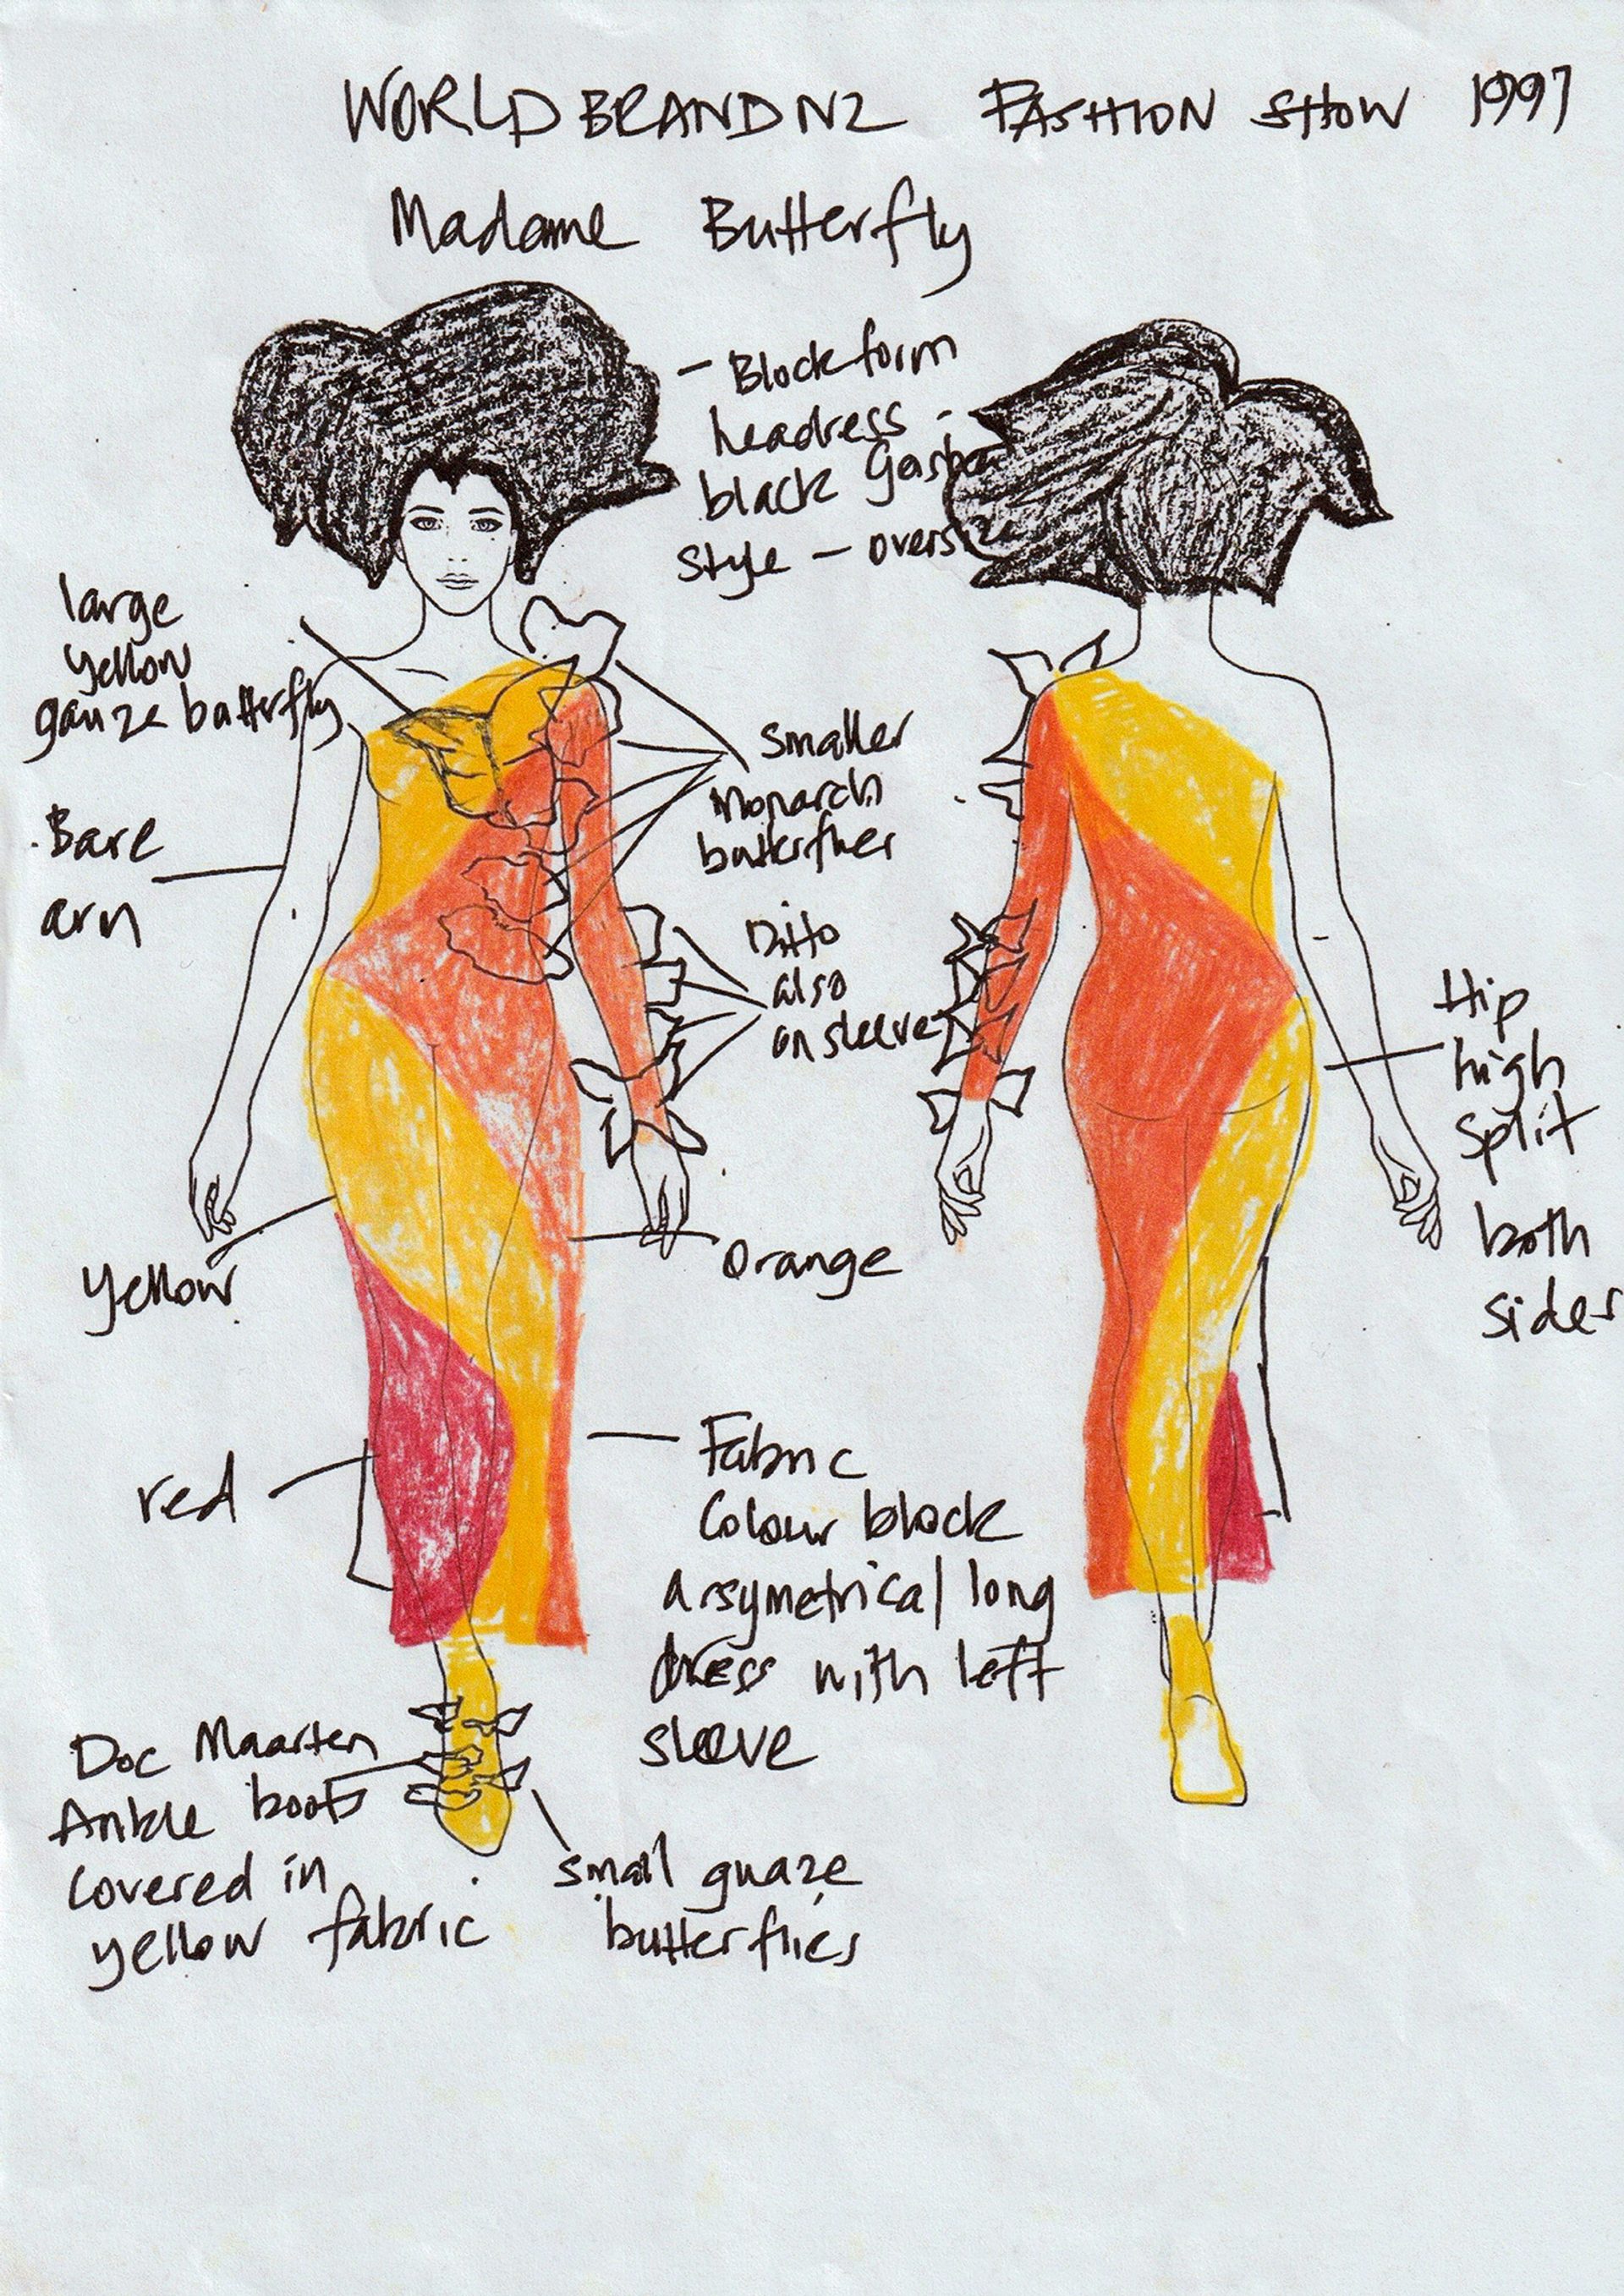 WORLD BRAND NZ FASHION SHOW 1997
Madame Butterfly
- Block form
headress -
black
style - oversize
large
yellow
gauze butterfly
Bare
arm
smaller
Monarch
butterflies
Ditto
also
on sleeve
Hip
high
split
both
sides
Yellow
Orange
red
Fabric
Colour block
Assymetrical long
dress with left
sleeve
Doc Maarten
Ankle boots
covered in
yellow fabric
small guaze
butterflies